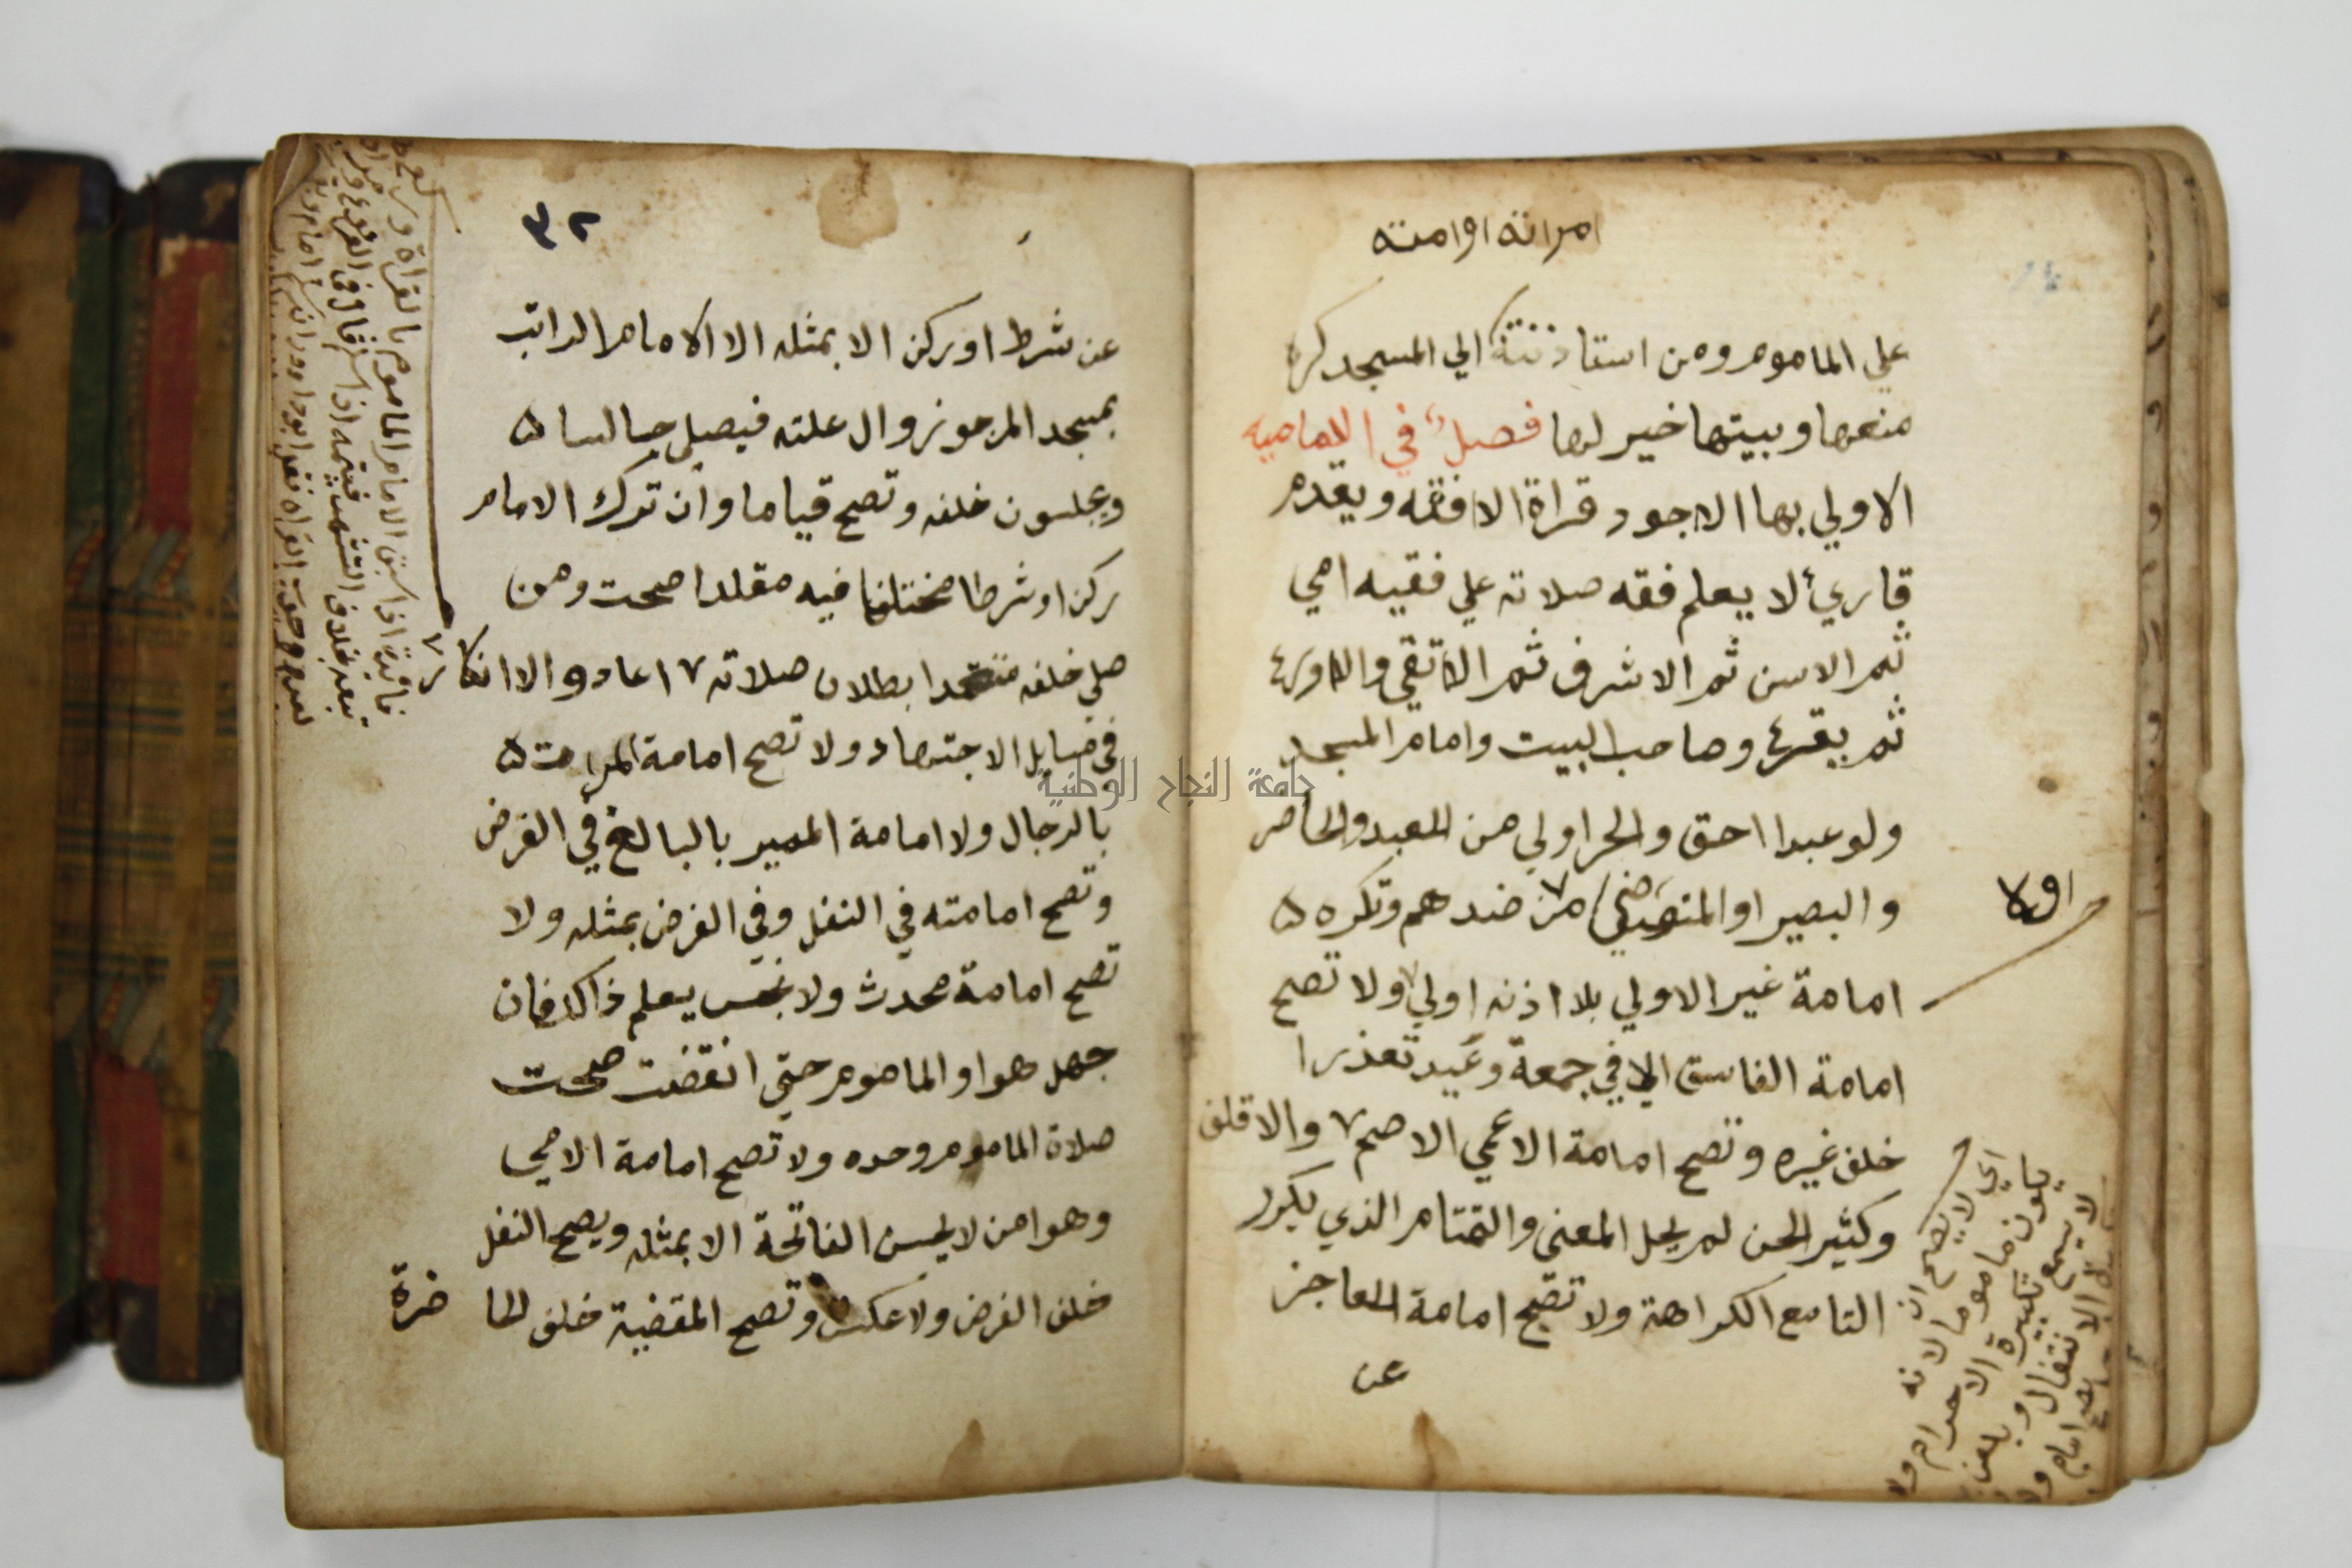 امراته او امته
علي الماموم ومن استاذنته الي المسجد كره
منعها وبيتها خير لها فصل في الامامة
الاولي بها الاجود قراة الافقه ويقدم
قاريء لا يعلم فقه صلاته علي فقيه امي
ثم الاسن ثم الاشرف ثم الاتقي والاورع
ثم يقرع وصاحب البيت وامام المسجد
ولو عبدا احق والحر اولي من العبد والحاضر
والبصير او المتوضي من ضدهم وتكره
امامة غير الاولي بلا اذنه اولي ولا تصح
امامة الفاسق الا في جمعة وعيد تعذرا
خلف غيره وتصح امامة الاعمي الاصم والاقلف
وكثير لحن لم يحل المعني والتمتام الذي يكرر
التا مع الكراهة ولا تصح امامة العاجز
عن
اي لا يصح ان
يكون ماموما لانه
لا يسمع تكبيرة الاحرام ولا
٣٢
عن شرط او ركن الا بمثله الا الامام الراتب
بمسجد المرجو زوال علته فيصلي جالسا
ويجلسون خلفه وتصح قياما وان ترك الامام
ركنا او شرطا مختلفا فيه مقلدا صحت ومن
صلي خلفه معتقدا بطلان صلاته اعاد ولا انكار
في مسايل الاجتهاد ولا تصح امامة المراة
بالرجال ولا امامة المميز بالبالغ في الفرض
وتصح امامته في النفل وفي الفرض بمثله ولا
تصح امامة محدث ولا نجس يعلم ذالك فان
جهل هو او الماموم حتي انقضت صحت
صلاة الماموم وحده ولا تصح امامة الامي
وهو من لا يحسن الفاتحة الا بمثله ويصح النفل
خلف الفرض ولا عكس وتصح المقضية خلف الحا
ضرة
فايدة اذا سبق الامام الماموم بالقراة
تبعه بخلاف التشهد فيتمه اذا سلم قال في الفروع
جامعة النجاح الوطنية